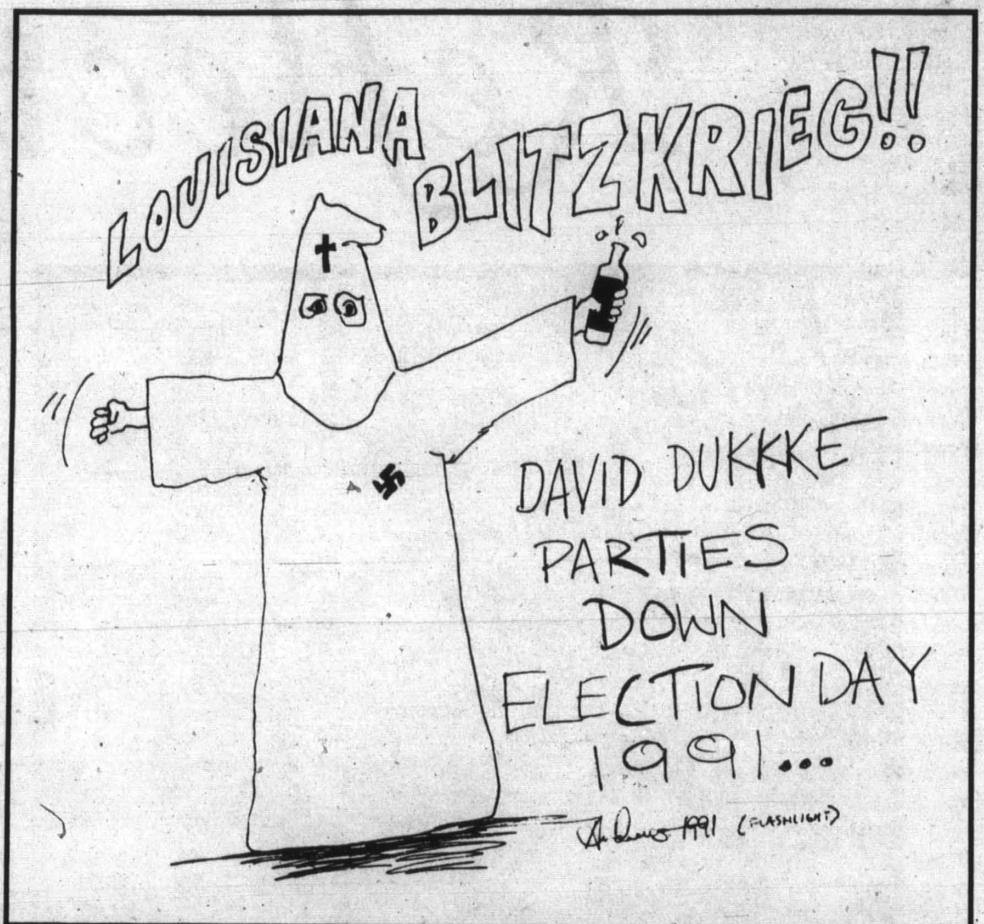 LOUISIANA BLITZKRIEG!!
DAVID DUKKKE
PARTIES
DOWN
ELECTION DAY
1991...
1991 (FLASHLIGHT)